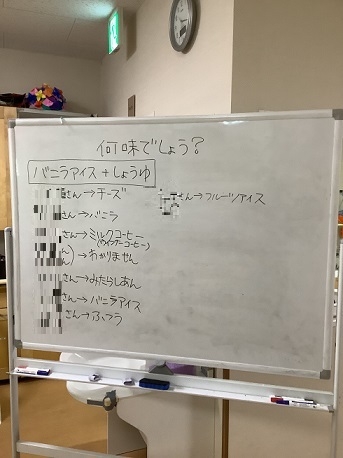 何味でしょう?
バニラアイス+しょうゆ
さん→チーズ
さん→バニラ
さん→ミルクコーヒー
(ウインナーコーヒー)
)→わかりません
さん→みたらしあん
さん→バニラアイス
さん→ふつう
さん→フルーツアイス